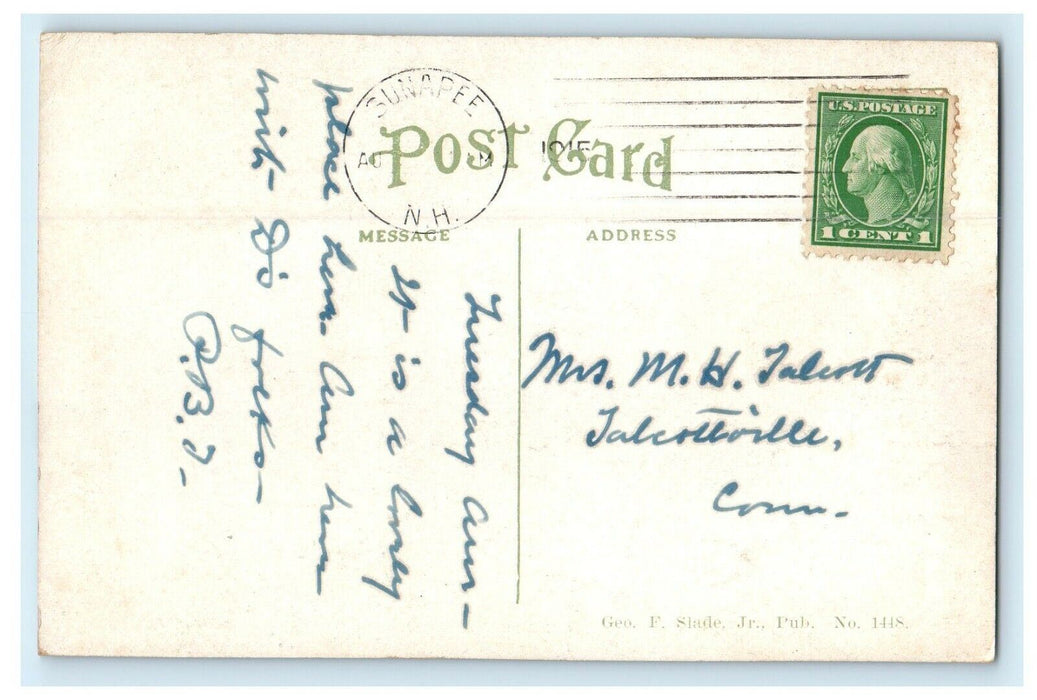 SUNAPEE
N.H.
1915
POST CARD
U.S. POSTAGE
1 CENT 1
MESSAGE
ADDRESS
Tuesday
It is a lovely
place here. Am here
with D's folks—
P.B.T—
Mrs. M. H. Talcott
Talcottville,
Conn.
Geo. F. Slade, Jr., Pub. No. 1448.